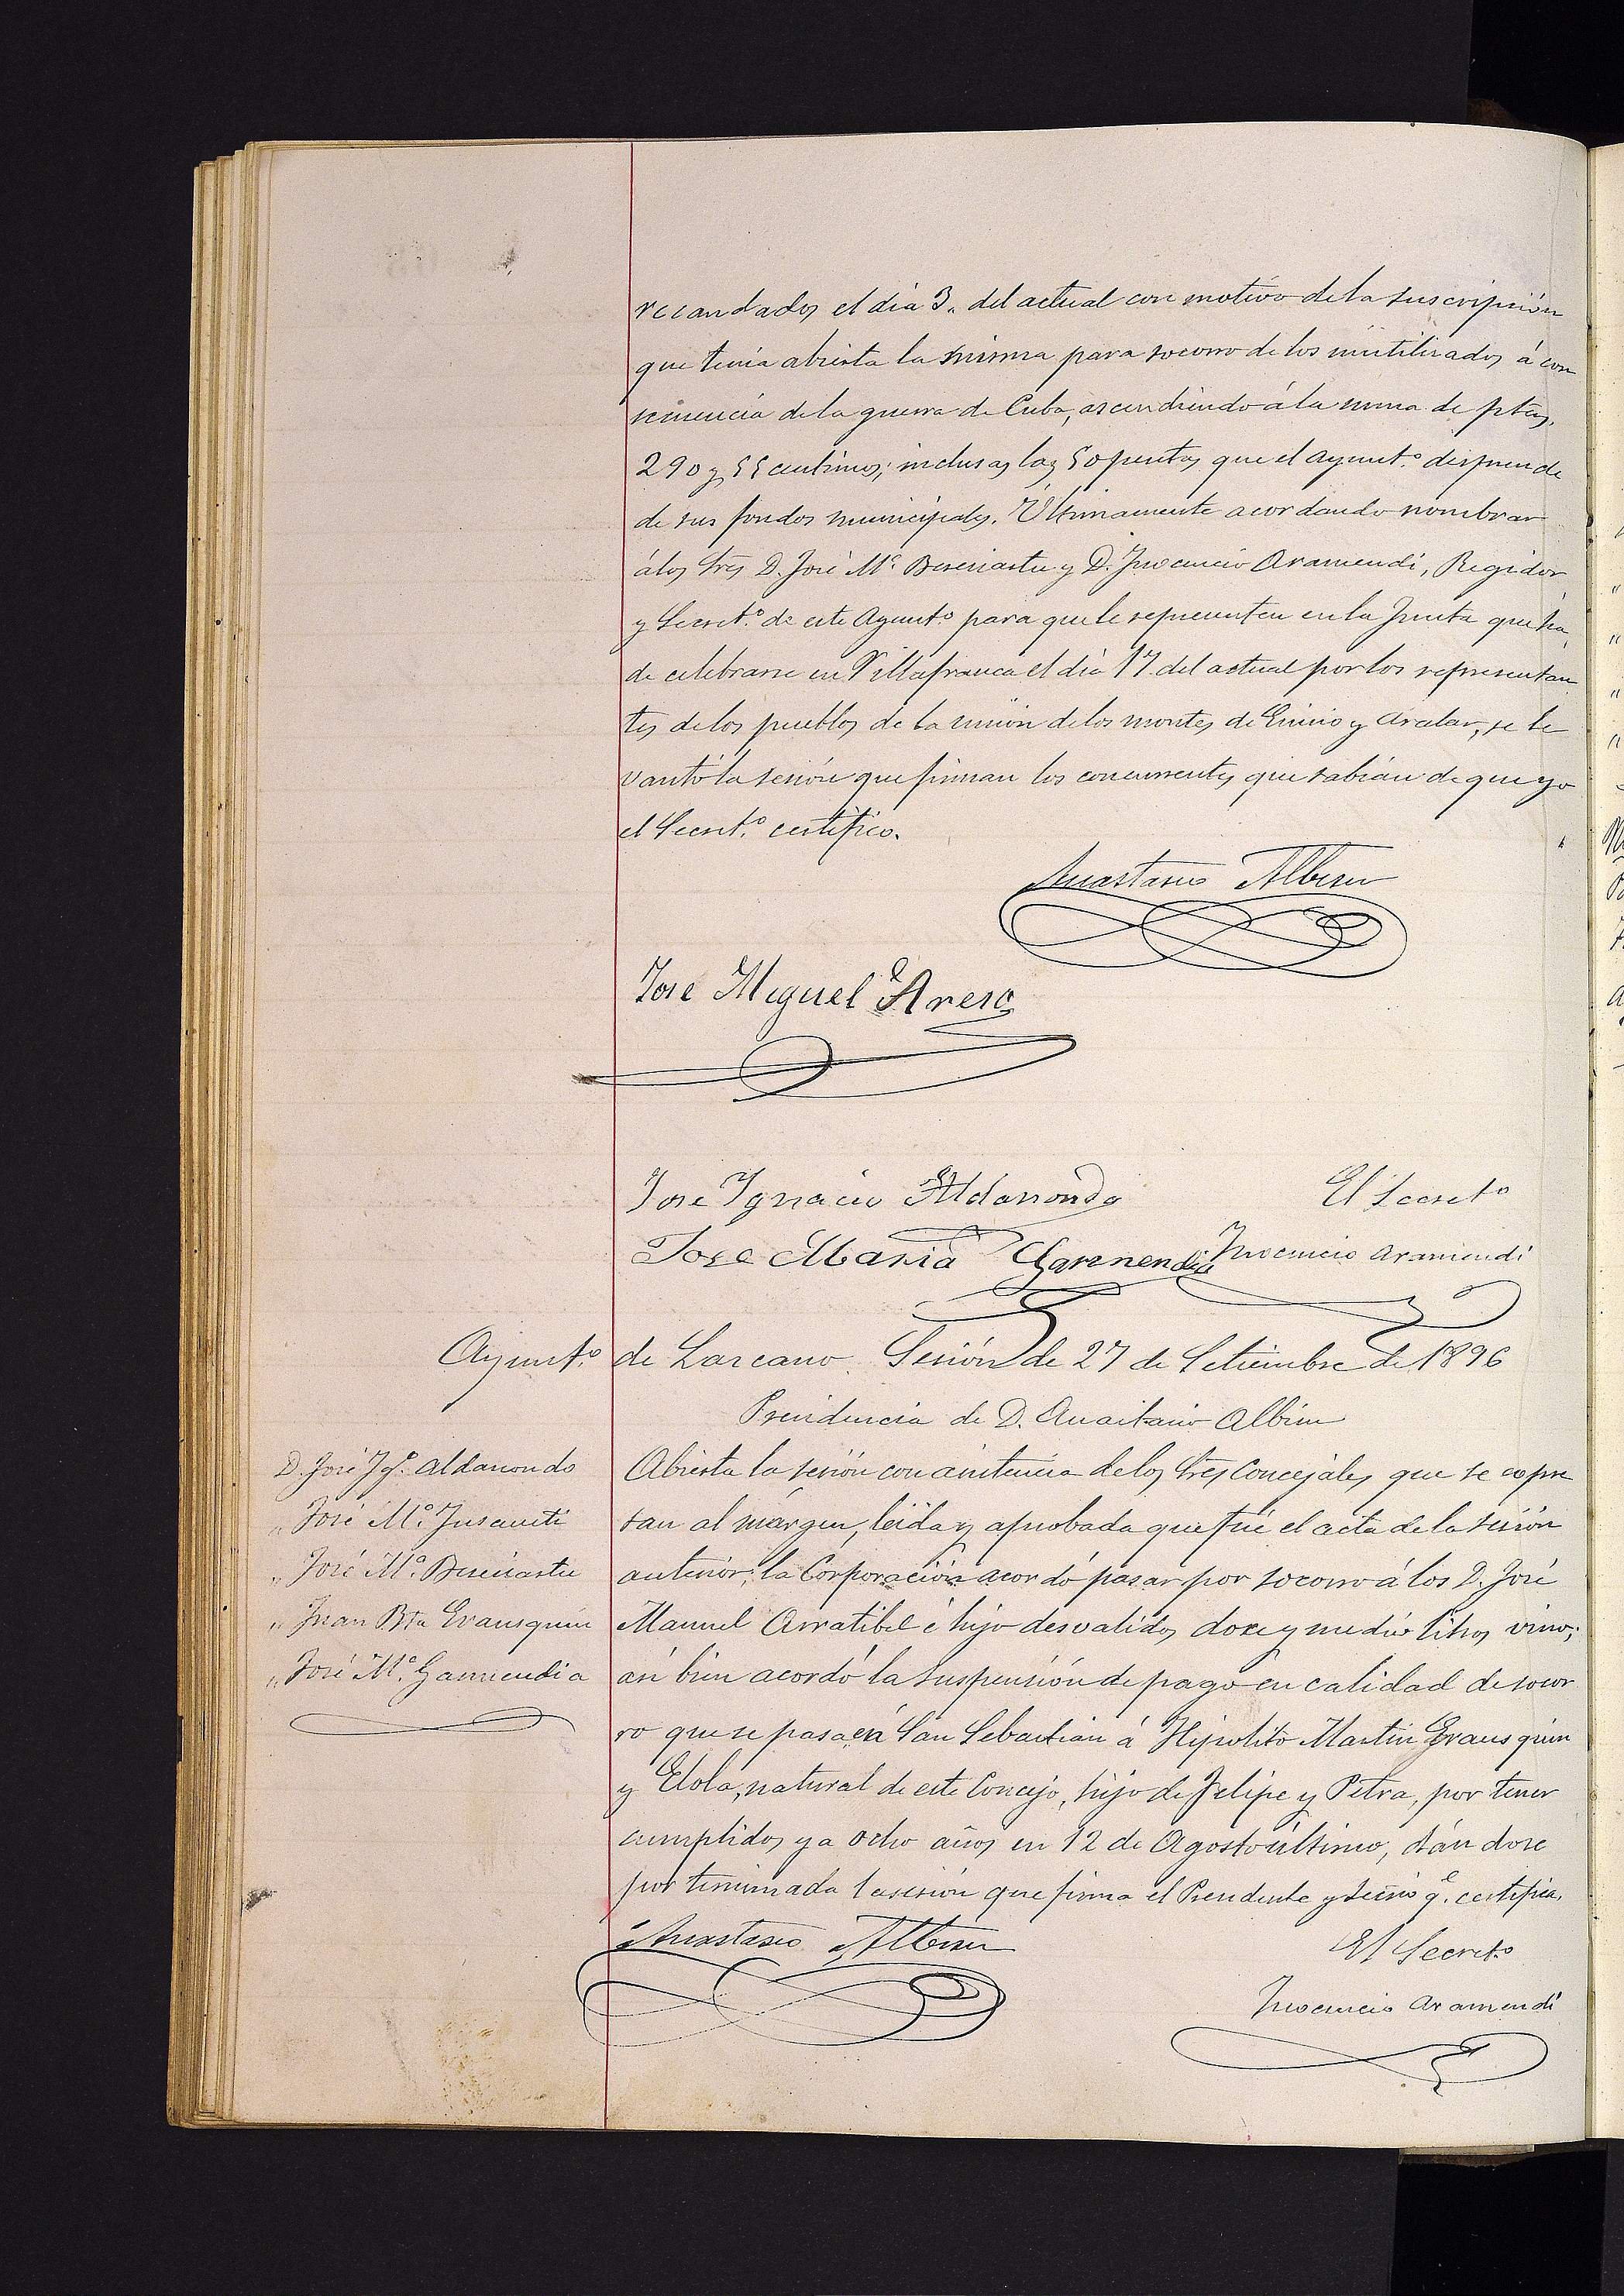 recaudados el dia 3. del actual con motivo de la suscripción
que tenía abierta la misma para socorro de los inutilizados á con
secuencia de la guerra de Cuba, ascendiendo á la suma de ptas.
290 y 55 centimos; inclusas las 50 pesetas que el ayunt.º desprende
de sus fondos municipales. Últimamente acordando nombrar
á los Sres D. José Mª Bereciartu y D. Inocencio Aramendi, Regidor
y Secret.º de este Ayunt.º para que le representen en la Junta que ha
de celebrarse en Villafranca el dia 17 del actual por los representan
tes de los pueblos de la unión de los montes de Enirio y Aralar, se le
vantó la sesión que firman los concurrentes que sabían de que yo
el Secret.º certifico.
Anastasio Albisu
José Miguel Areso
José Ignacio Aldanondo El Secret.º
José Maria Garmendia Inocencio Aramendi
Ayunt.º de Lazcano. Sesión de 27 de Setiembre de 1896
Presidencia de D. Anastasio Albisu
D. José Igº. Aldanondo
" José Mª. Insausti
" José Mª. Bereciartu
" Juan Bta Erausquin
" José Mª. Garmendia
Abierta la sesión con asistencia de los Sres Concejales que se expre
san al márgen, leida y aprobada que fué el acta de la sesión
anterior; la Corporación acordó pasar por socorro á los D. José
Manuel Arratibel é hijo desvalidos doce y medio litros vino;
así bien acordó la suspensión de pago en calidad de socor
ro que se pasa en San Sebastian á Hipolito Martin Erausquin
y Elola, natural de este Concejo, hijo de Felipe y Petra, por tener
cumplidos ya ocho años en 12 de Agosto último, dándose
por terminada la sesión que firma el Presidente y Secrio q.e certifica.
Anastasio Albisu El Secret.º
Inocencio Aramendi